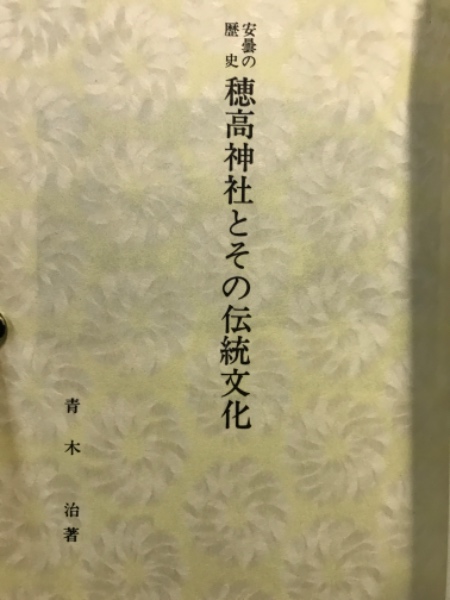 安曇の
歴史
穂高神社とその伝統文化
青木治著